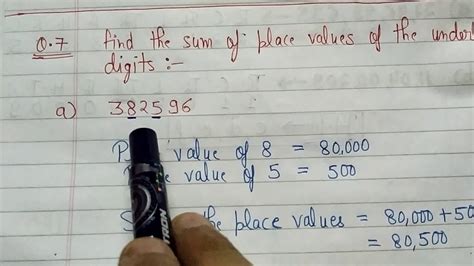 Q.7 find the sum of place values of the
digits :-
a) 382596
value of 8 = 80,000
value of 5 = 500
the place values = 80,000 + 50
= 80,500